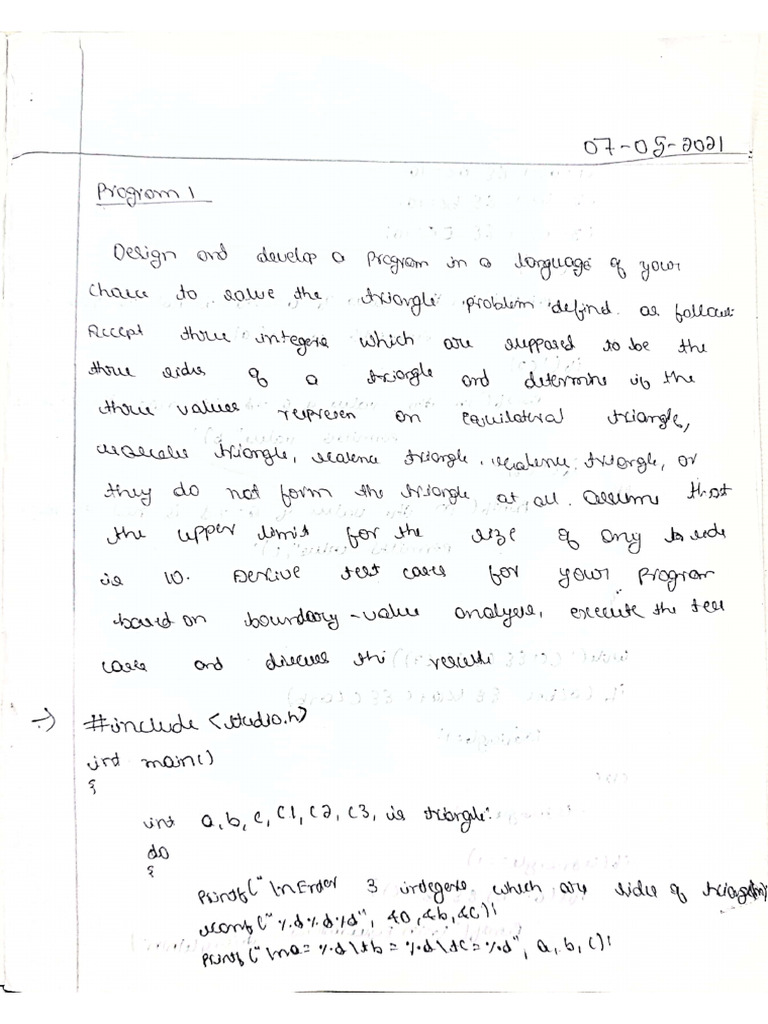 07-05-2021
Program 1
Design and develop a program in a language of your
choice to solve the triangle problem defind as follows:
Accept three integers which are supposed to be the
three sides of a triangle and determine if the
three values represen an equilateral triangle,
isosceles triangle, scalene triangle, scalene triangle, or
they do not form the triangle at all. Assume that
the upper limit for the size of any side
is 10. Derive test cases for your program
based on boundary-value analysis, execute the test
cases and discuss the results
#include <studio.h>
int main()
{
int a, b, c, c1, c2, c3, is triangle;
do
{
printf("\nEnter 3 integers which are sides of triangle\n");
scanf("%d%d%d", &a, &b, &c);
printf("\na=%d\tb=%d\tc=%d", a, b, c);